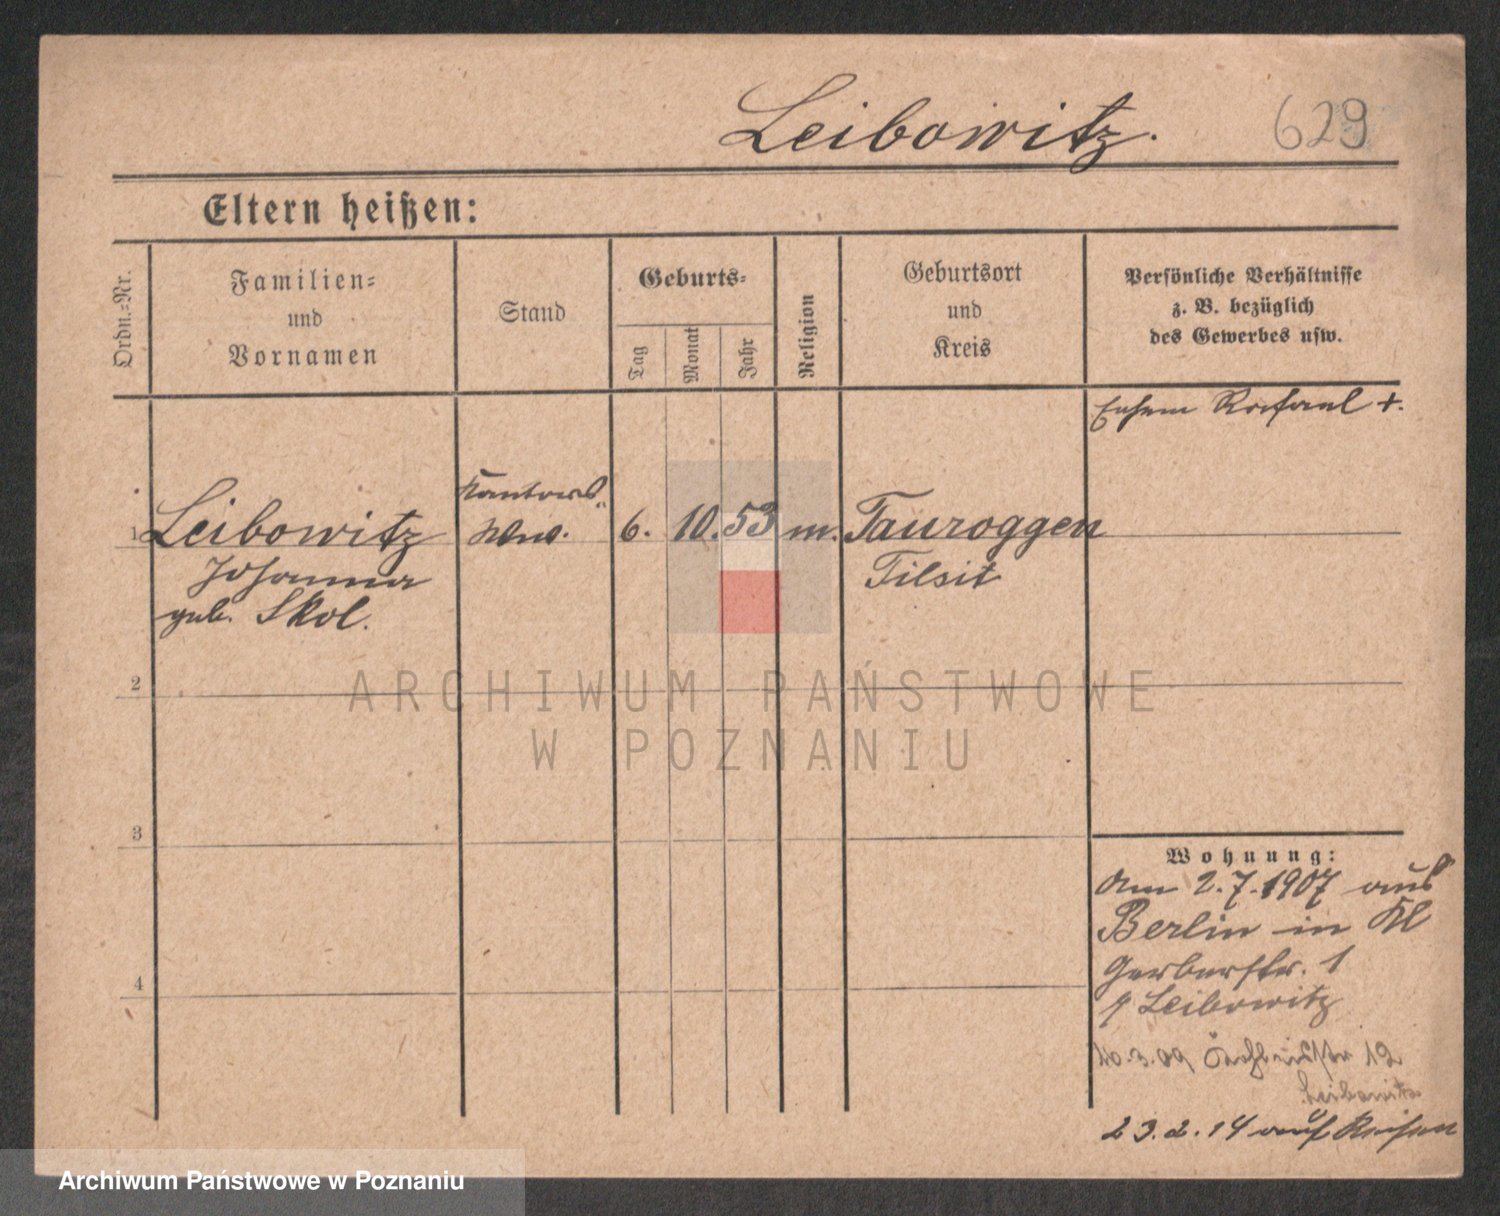 Leibowitz.
629
Eltern heißen:
Ordn.=Nr.
Familien=
und
Vornamen
Stand
Geburts=
Tag
Monat
Jahr
Religion
Geburtsort
und
Kreis
Persönliche Verhältnisse
z. B. bezüglich
des Gewerbes usw.
Ehem Rafael +.
1
Leibowitz
Johanna
geb. Skol.
Kantors
Wwe.
6. 10. 53 m.
Tauroggen
Tilsit
2
ARCHIWUM PAŃSTWOWE
W POZNANIU
3
4
Wohnung:
Am 2.7.1907 aus
Berlin in Kl
Gerberstr. 1
Leibowitz
10.3.09 12
Leibowitz
23.2.14 auf Reisen
Archiwum Państwowe w Poznaniu